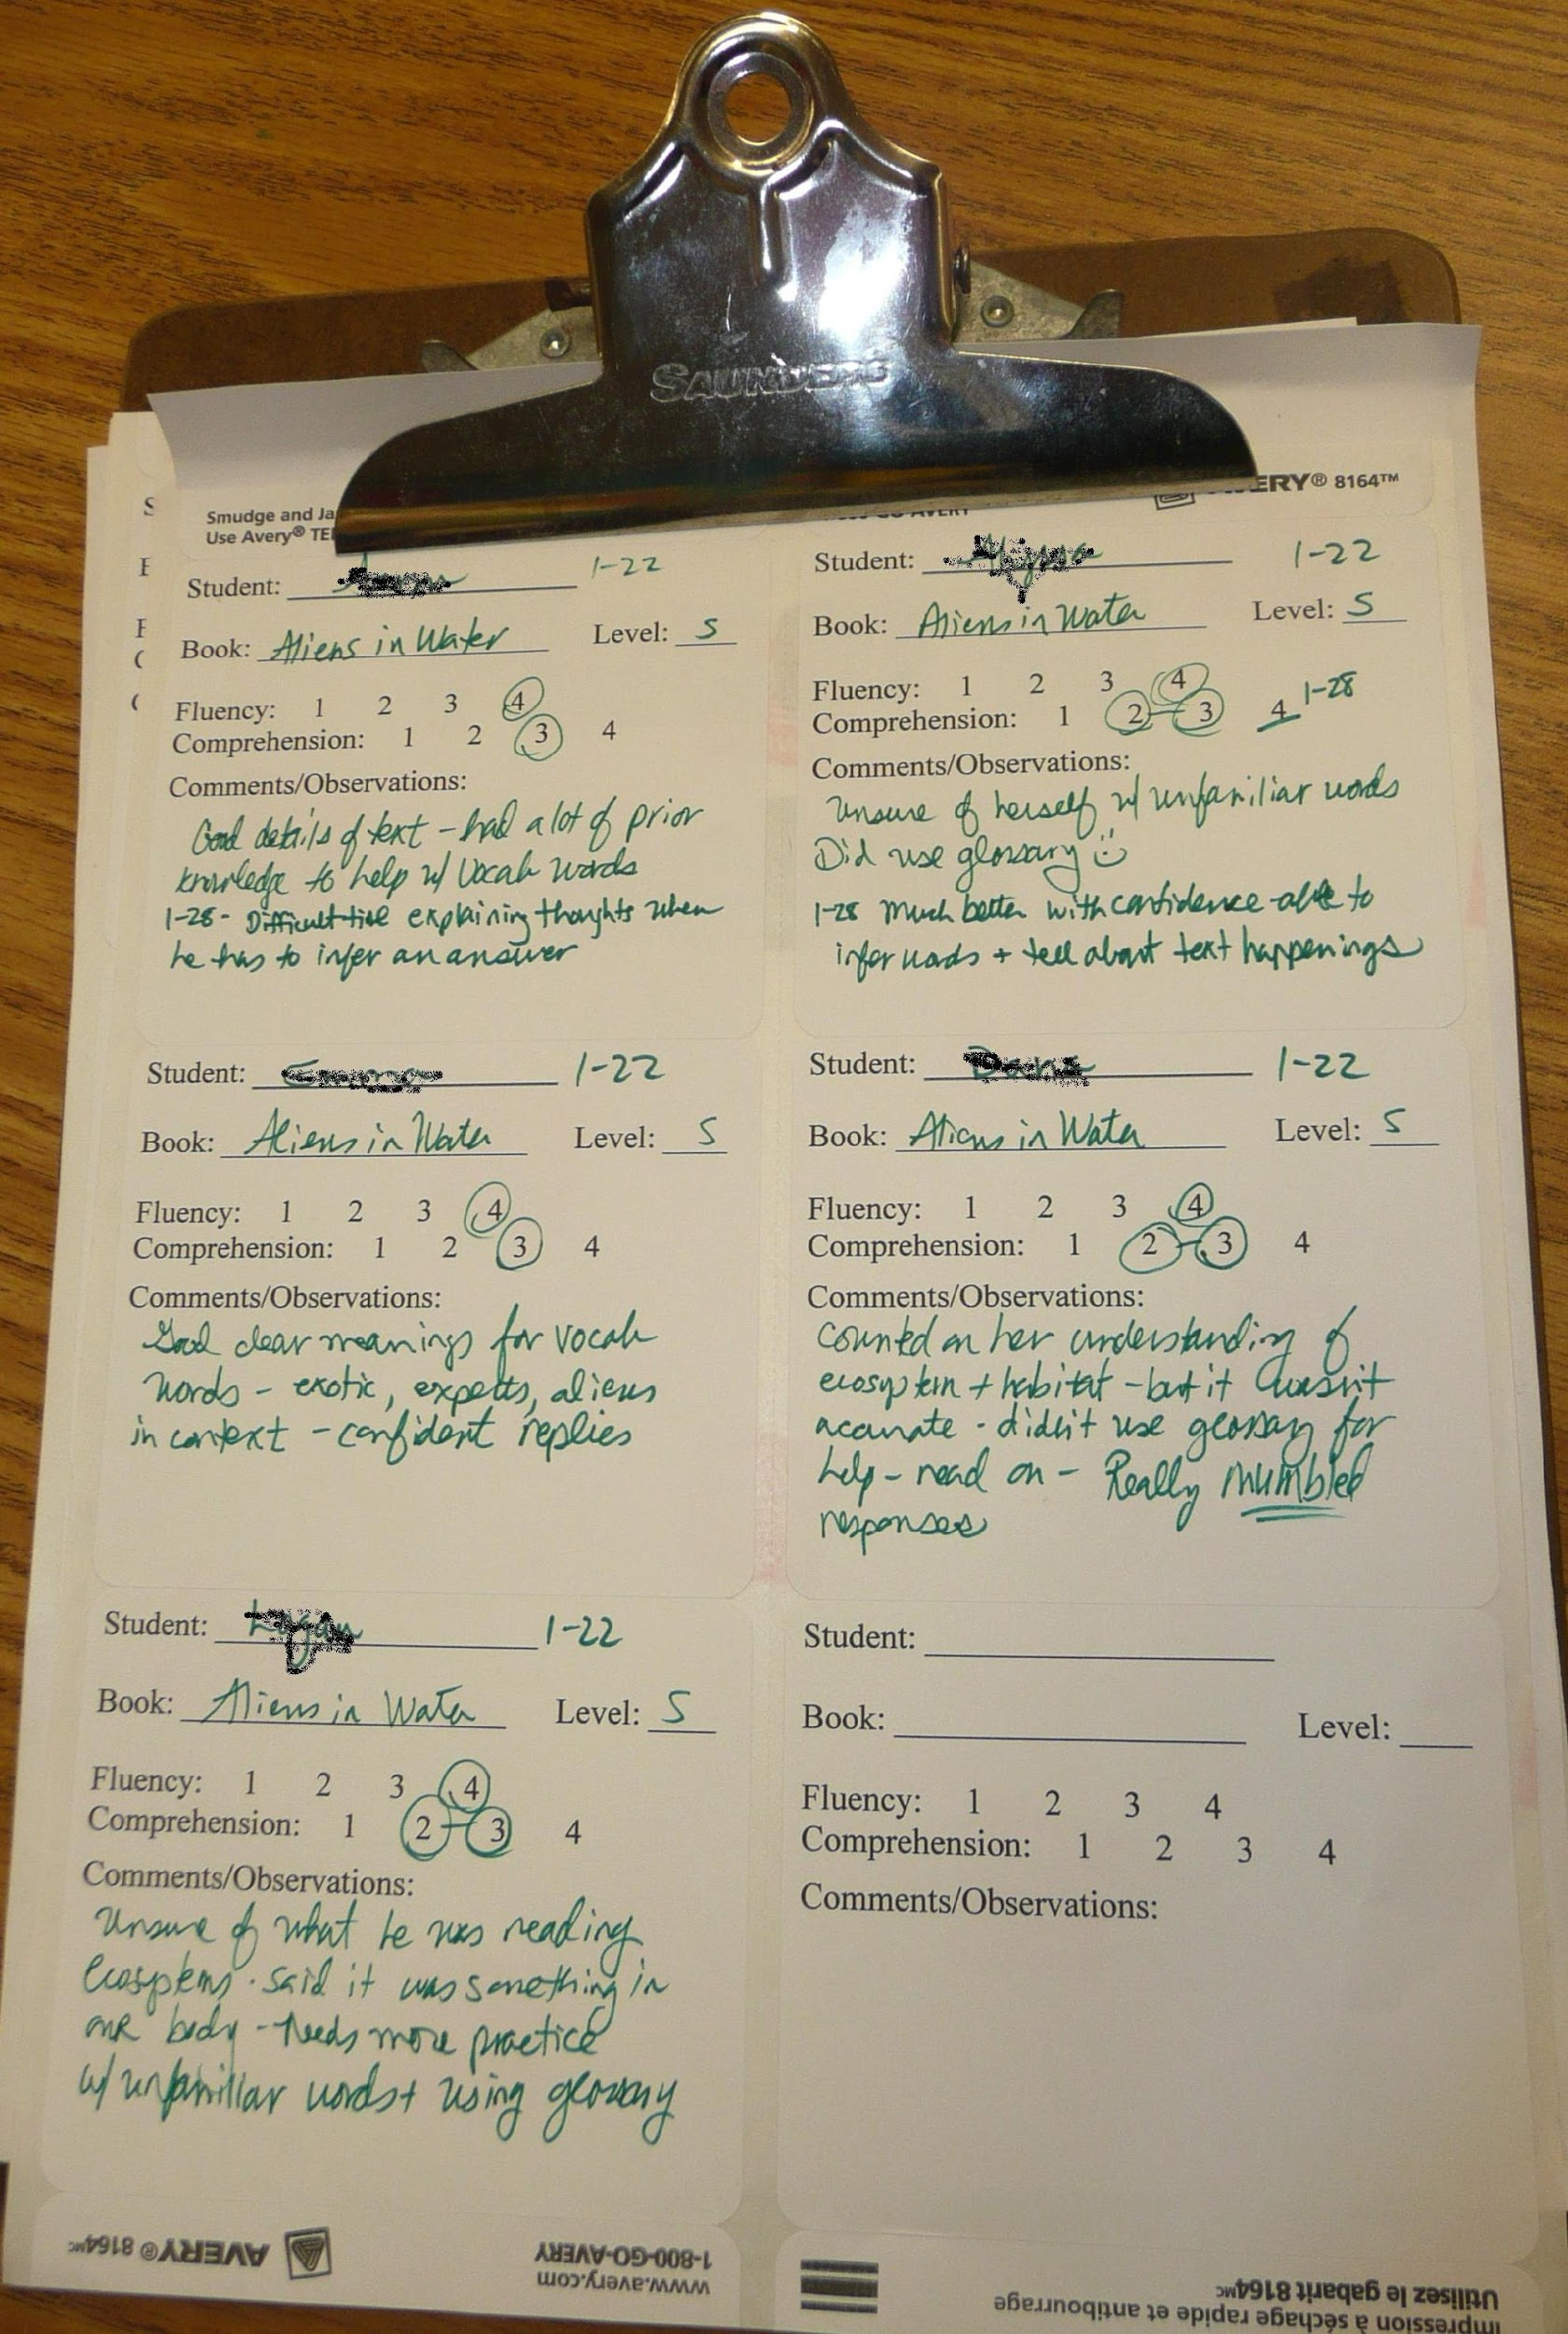 SAUNDERS
Smudge and Ja
Use Avery® TE
AVERY® 8164™
Student: 1-22
Book: Aliens in Water Level: S
Fluency: 1 2 3 4
Comprehension: 1 2 3 4
Comments/Observations:
Good details of text - had a lot of prior
knowledge to help w/ vocab words
1-28- Difficult time explaining thoughts when
he has to infer an answer
Student: 1-22
Book: Aliens in Water Level: S
Fluency: 1 2 3 4
Comprehension: 1 2 3 4 1-28
Comments/Observations:
Unsure of herself w/ unfamiliar words
Did use glossary
1-28 Much better with confidence - able to
infer words + tell about text happenings
Student: 1-22
Book: Aliens in Water Level: S
Fluency: 1 2 3 4
Comprehension: 1 2 3 4
Comments/Observations:
Good clear meanings for vocab
words - exotic, experts, aliens
in context - confident replies
Student: 1-22
Book: Aliens in Water Level: S
Fluency: 1 2 3 4
Comprehension: 1 2 3 4
Comments/Observations:
Counted on her understanding of
ecosystem + habitat - but it wasn't
accurate - didn't use glossary for
help - read on - Really mumbled
responses
Student: 1-22
Book: Aliens in Water Level: S
Fluency: 1 2 3 4
Comprehension: 1 2 3 4
Comments/Observations:
Unsure of what he was reading
ecosystems. said it was something in
our body - Needs more practice
w/ unfamiliar words + using glossary
Student:
Book: Level:
Fluency: 1 2 3 4
Comprehension: 1 2 3 4
Comments/Observations:
AVERY® 8164MC
www.avery.com
1-800-GO-AVERY
Impression à séchage rapide et antibourrage
Utilisez le gabarit 8164MC